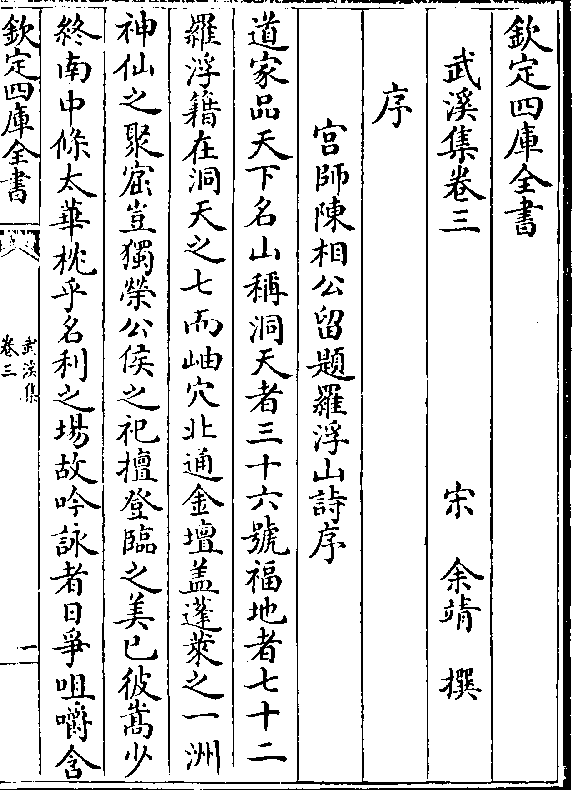 欽定四庫全書
武溪集卷三
宋　余靖　撰
序
宫師陳相公留題羅浮山詩序
道家品天下名山稱洞天者三十六號福地者七十二
羅浮籍在洞天之七而岫穴北通金壇盖蓬萊之一洲
神仙之聚窟豈獨榮公侯之祀擅登臨之美已彼嵩少
終南中條太華枕乎名利之場故吟詠者日爭咀嚼含
欽定四庫全書
武溪集
卷三
一